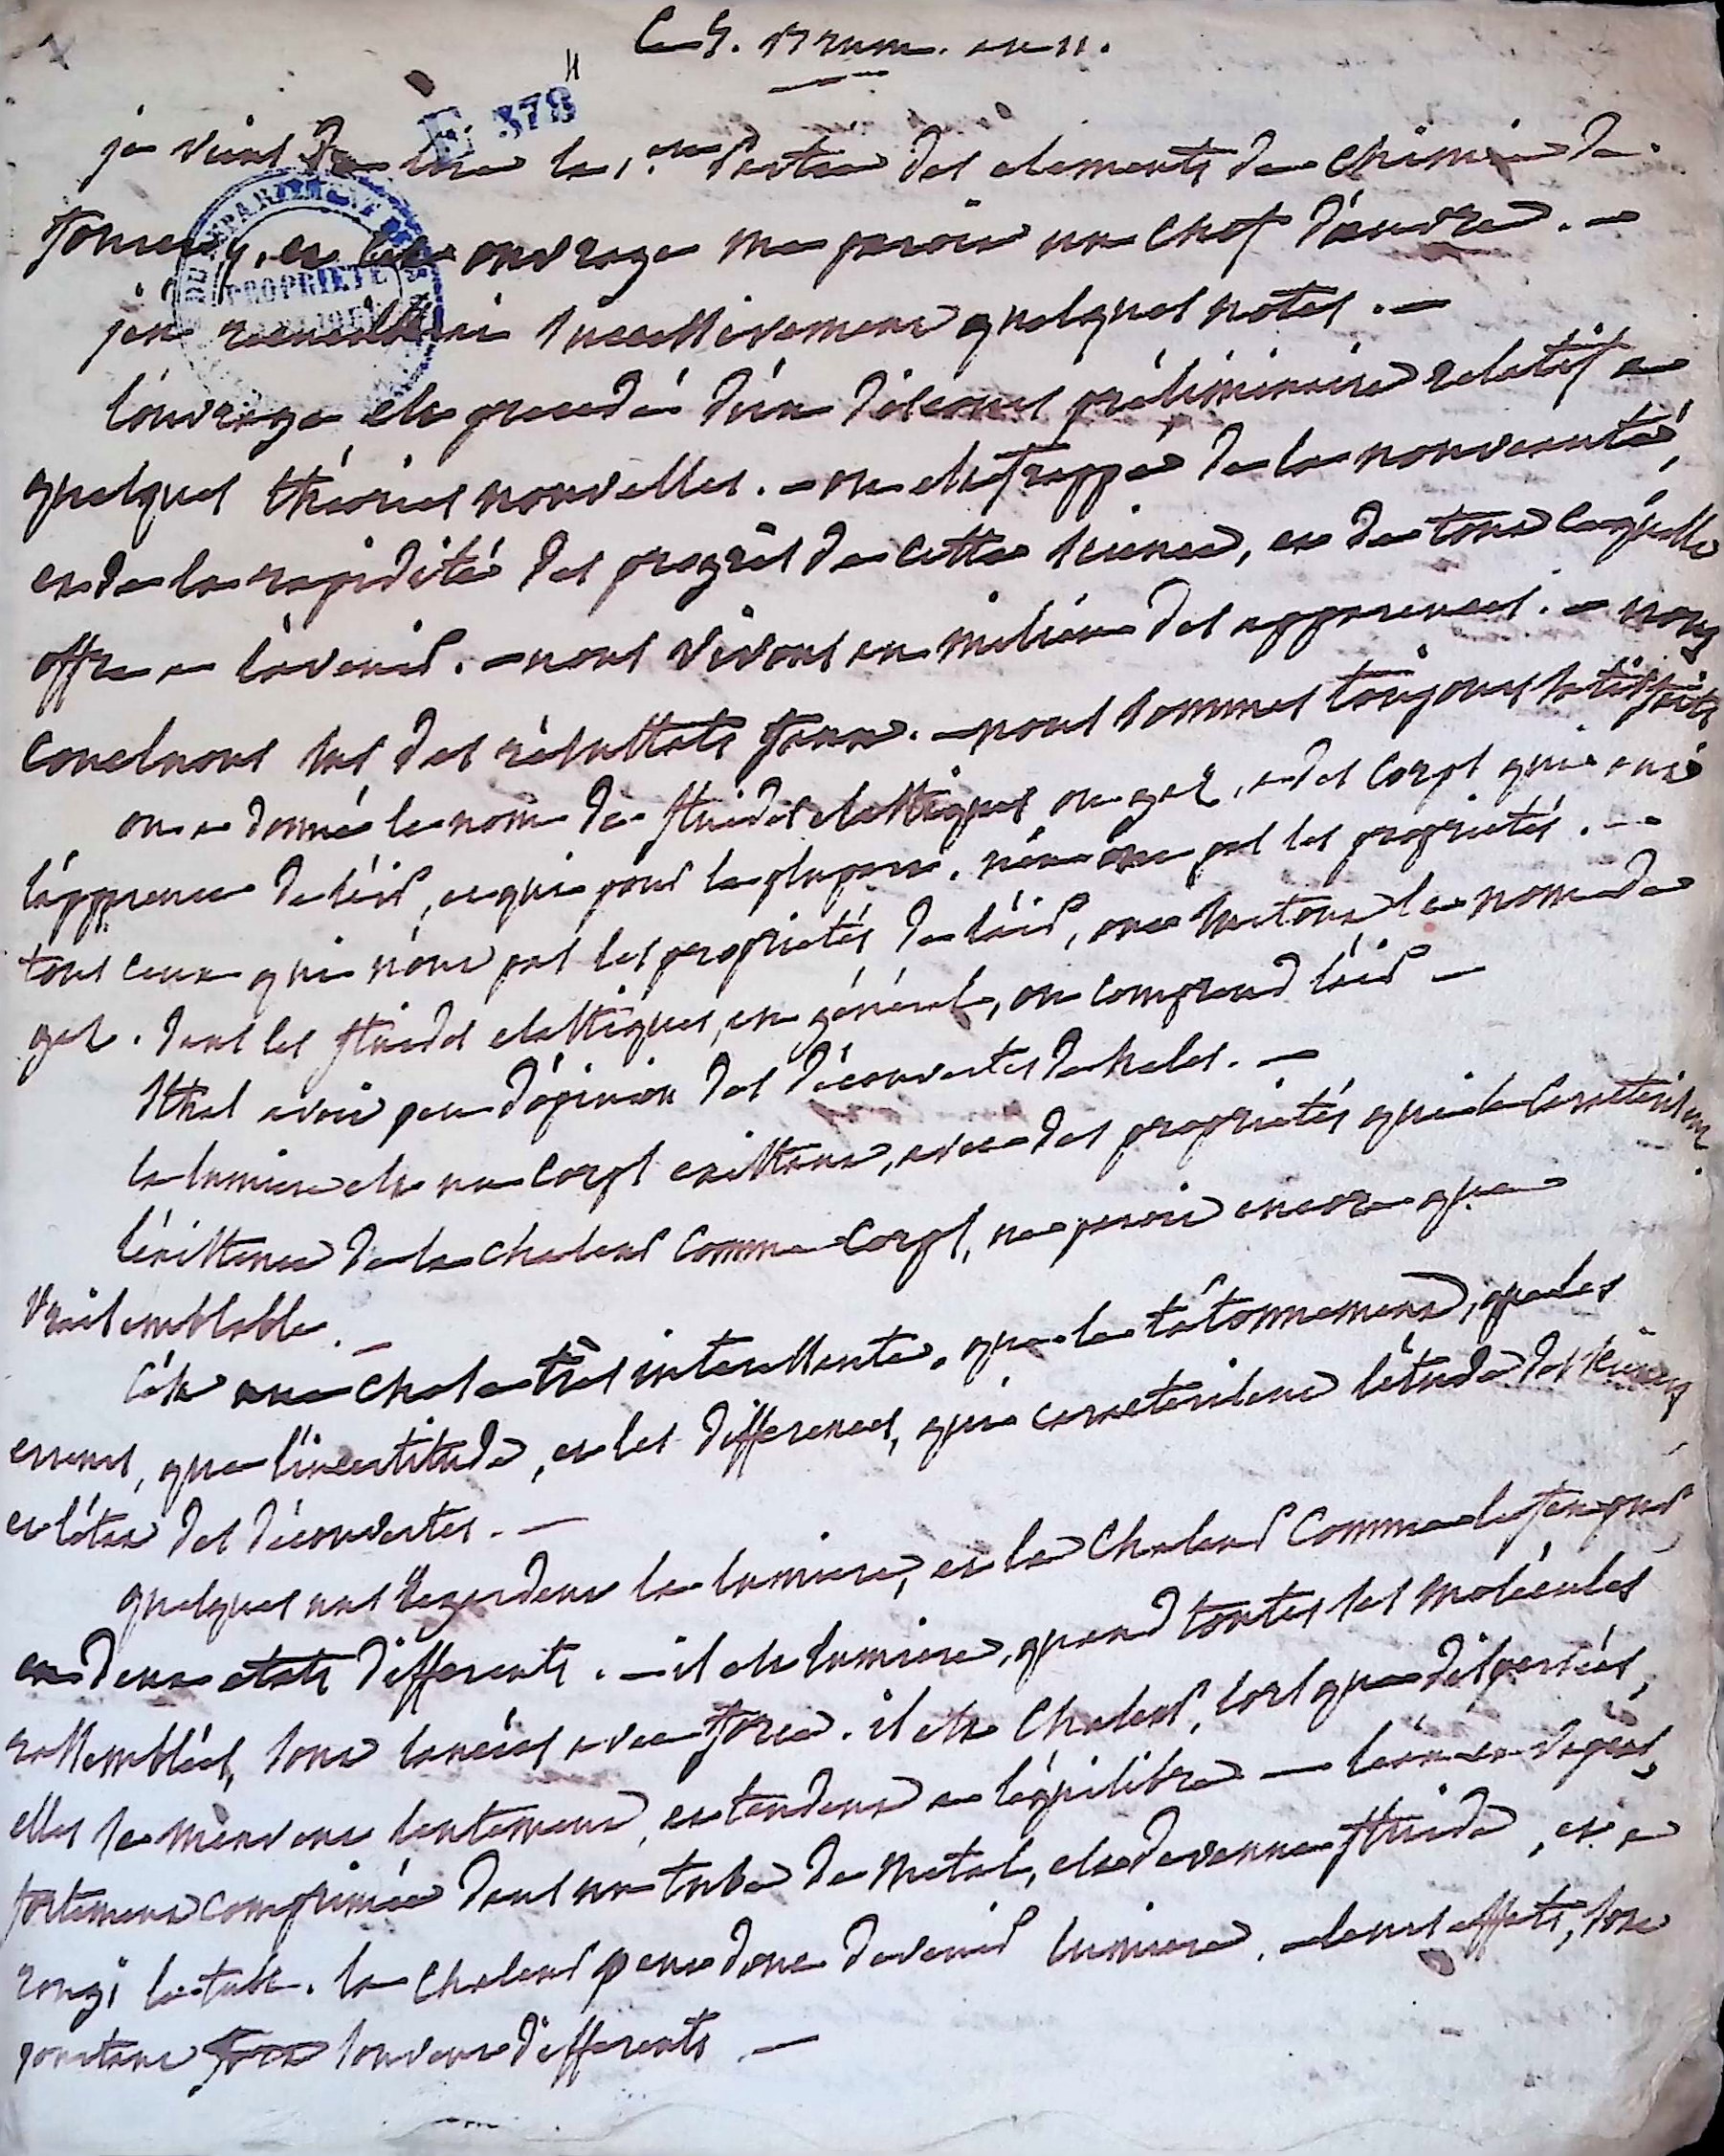 Ce 5. Brum. an 11.
E 378
je viens de lire la 1.ere Partie des elements de chimie de
fourcroy, et cet ouvrage me paroit un chef d'oeuvre. —
j'en recueillerai successivement quelques notes. —
l'ouvrage est precedé d'un discours préliminaire relatif a
quelques théories nouvelles. — on est frappé de la nouveauté,
et de la rapidité des progrès de cette science, et de tout ce qu'elle
offre a l'avenir. — nous vivons au milieu des apparences. — nous
concluons sur des résultats faux. — nous sommes toujours satisfaits
on a donné le nom de fluides elastiques ou gaz, a des corps qui ont
l'apparence de l'air, et qui pour la plupart, n'en ont pas les proprietés. —
tous ceux qui n'ont pas les proprietés de l'air, ont surtout le nom de
gaz. dans les fluides elastiques, en général, on comprend l'air —
Sthal avoit peu d'opinion des découvertes de hales. —
la lumiere est un corps existant, avec des proprietés qui la caractérisent.
l'existence de la chaleur comme corps, ne paroit encore que
vraisemblable. —
c'est une chose très interessante, que le tâtonnement, que les
erreurs, que l'incertitude, et les differences, qui caracterisent l'étude des sciences
et l'état des découvertes. —
quelques uns regardent la lumiere, et la chaleur comme le feu pur
en deux etats differents. — il est lumiere, quand toutes ses molécules
rassemblées, sont lancées avec force. il est chaleur, lorsque dispersées,
elles se meuvent lentement, et tendent a l'équilibre — l'eau en vapeurs,
fortement comprimée dans un tube de metal, est devenue fluide, et a
rougi le tube. la chaleur peut donc devenir lumiere. — leurs effets, sont
pourtant souvent differents —
DEPARTEMENT
PROPRIETE